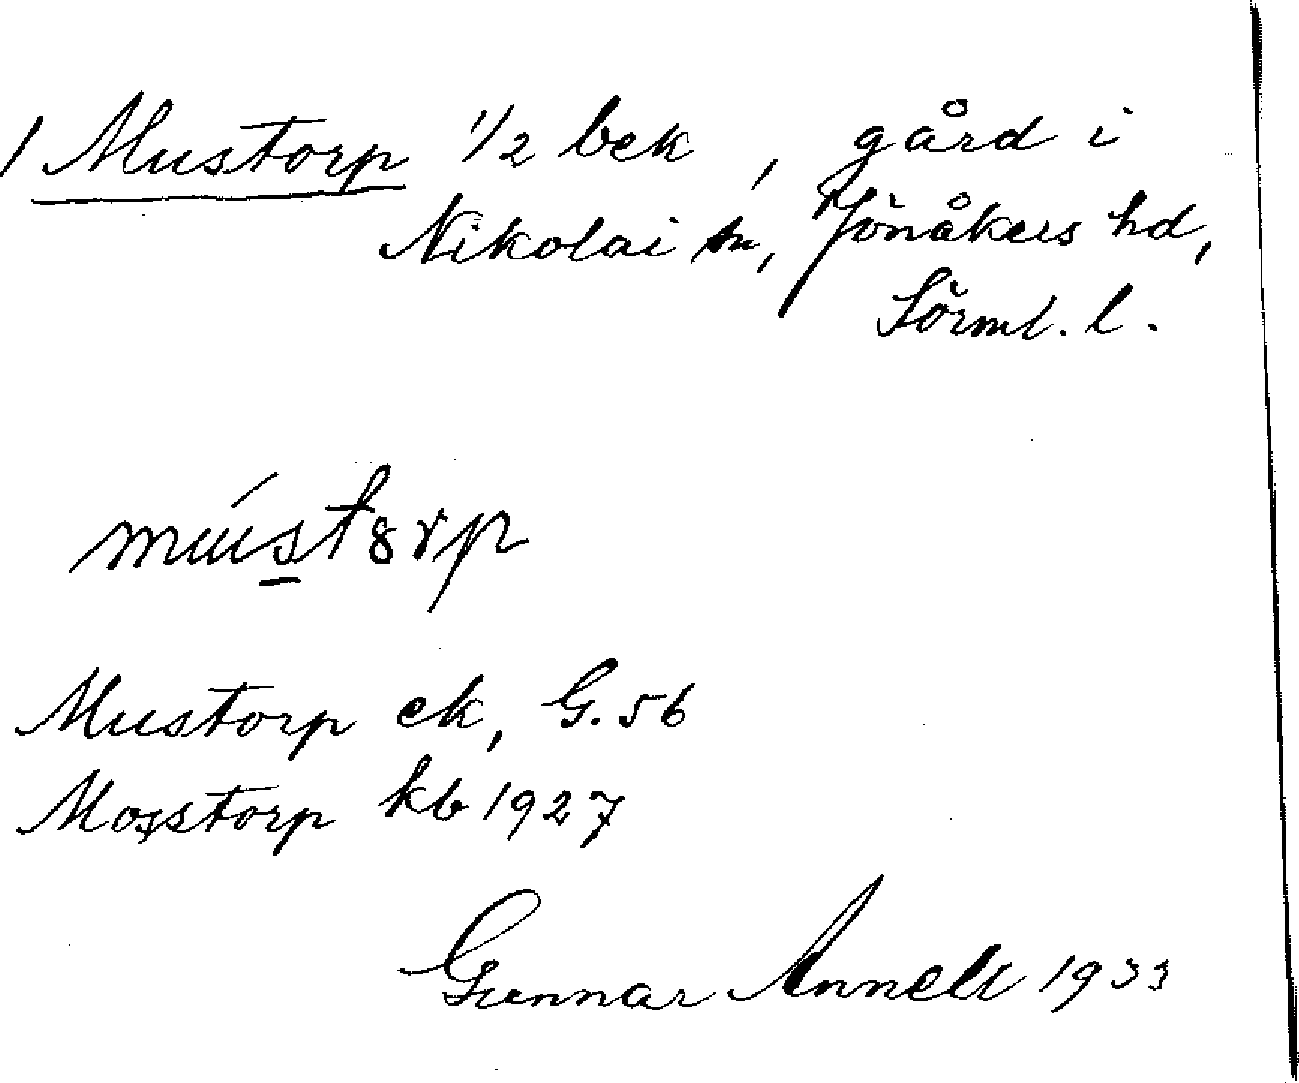 / Mustorp 1/2 bek, gård i
Nikolai sn, Jönåkers hd,
Sörml. l.
mústȣrp
Mustorp ek, G. 56
Mosstorp kb 1927
Gunnar Annell 1933